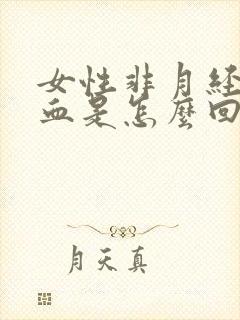 女性非月经
血是怎麼回
月天真